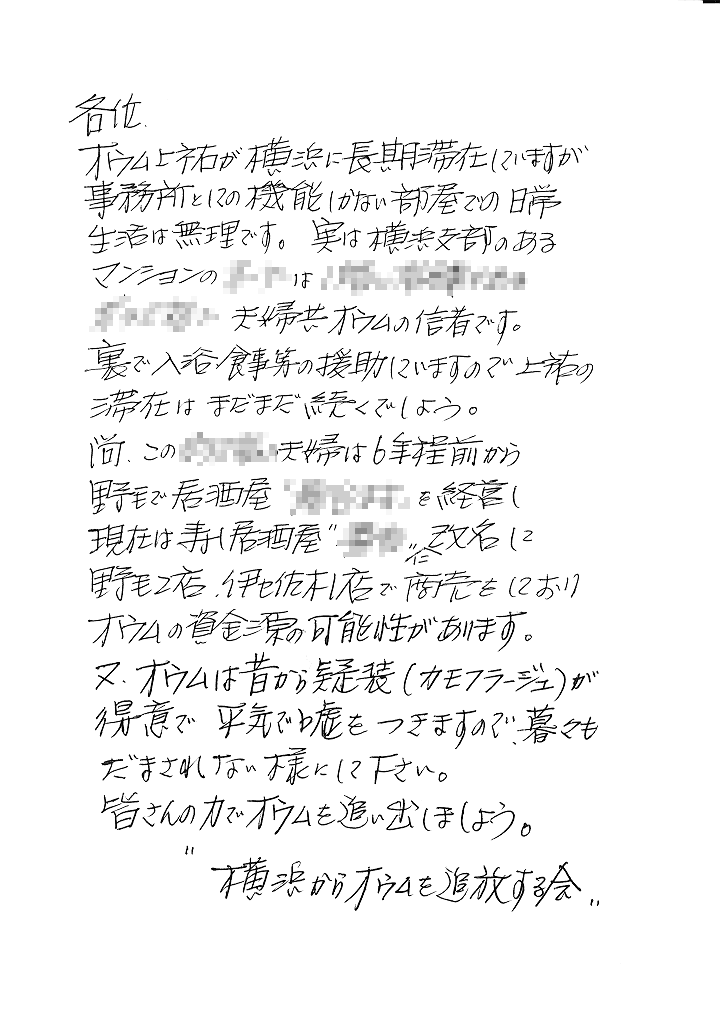 各位.
オウム上祐が横浜に長期滞在していますが
事務所としての機能しかない部屋での日常
生活は無理です。実は横浜支部のある
マンションの は
夫婦共オウムの信者です。
裏で入浴・食事等の援助していますので上祐の
滞在はまだまだ続くでしょう。
尚、この 夫婦は6年程前から
野毛で居酒屋" を経営し
現在は寿し居酒屋" "に改名して
野毛2店、伊セ佐木1店で商売をしており
オウムの資金源の可能性があります。
又、オウムは昔から疑装(カモフラージュ)が
得意で平気で嘘をつきますので、暮々も
だまされない様にして下さい。
皆さんの力でオウムを追い出しましょう。
"横浜からオウムを追放する会"